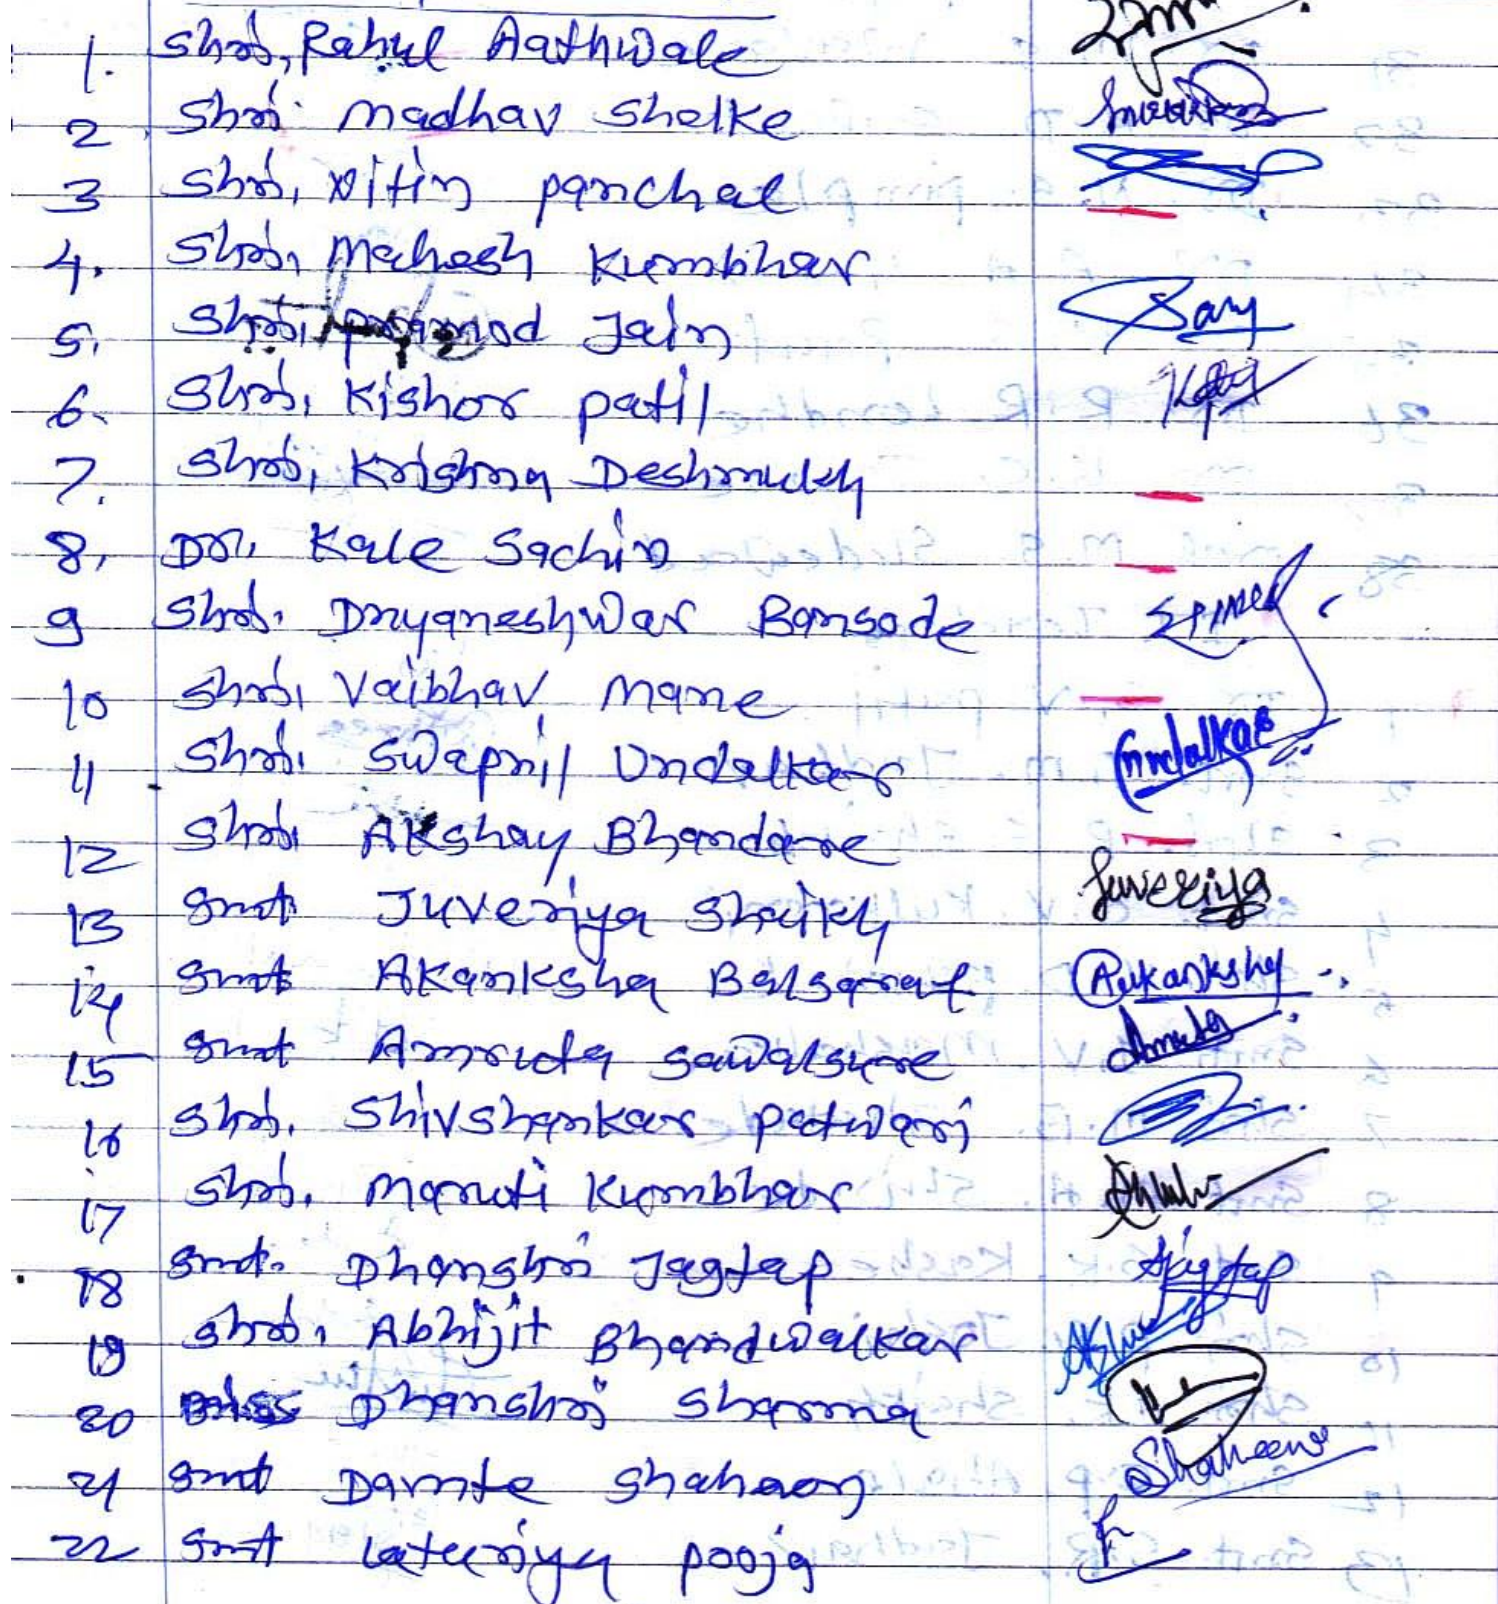 1. Shri, Rahul Aathwale
2 Shri Madhav Shelke
3 Shri, Nitin panchal
4. Shri, Mahesh Kumbhar
5. Shri, pramod Jain
6. Shri, Kishor patil
7. Shri, Krishna Deshmukh
8. Dr. Kale Sachin
9 Shri. Dnyaneshwar Bansode
10 Shri, Vaibhav Mane
11 Shri. Swapnil Undalkar Undalkar
12 Shri Akshay Bhandare
13 Smt Juveriya Shaikh Juveriya
14 Smt Akanksha Balsaraf Aakanksha
15 Smt Amruta Sawalsure Amruta
16 Shri. Shivshankar patwari
17 Shri. Maruti Kumbhar
18 Smt. Dhanshri Jagtap Jagtap
19 Shri, Abhijit Bhandwalkar
20 Miss Dhanshri Sharma
21 Smt Damte Shaheen Shaheen
22 Smt pooja